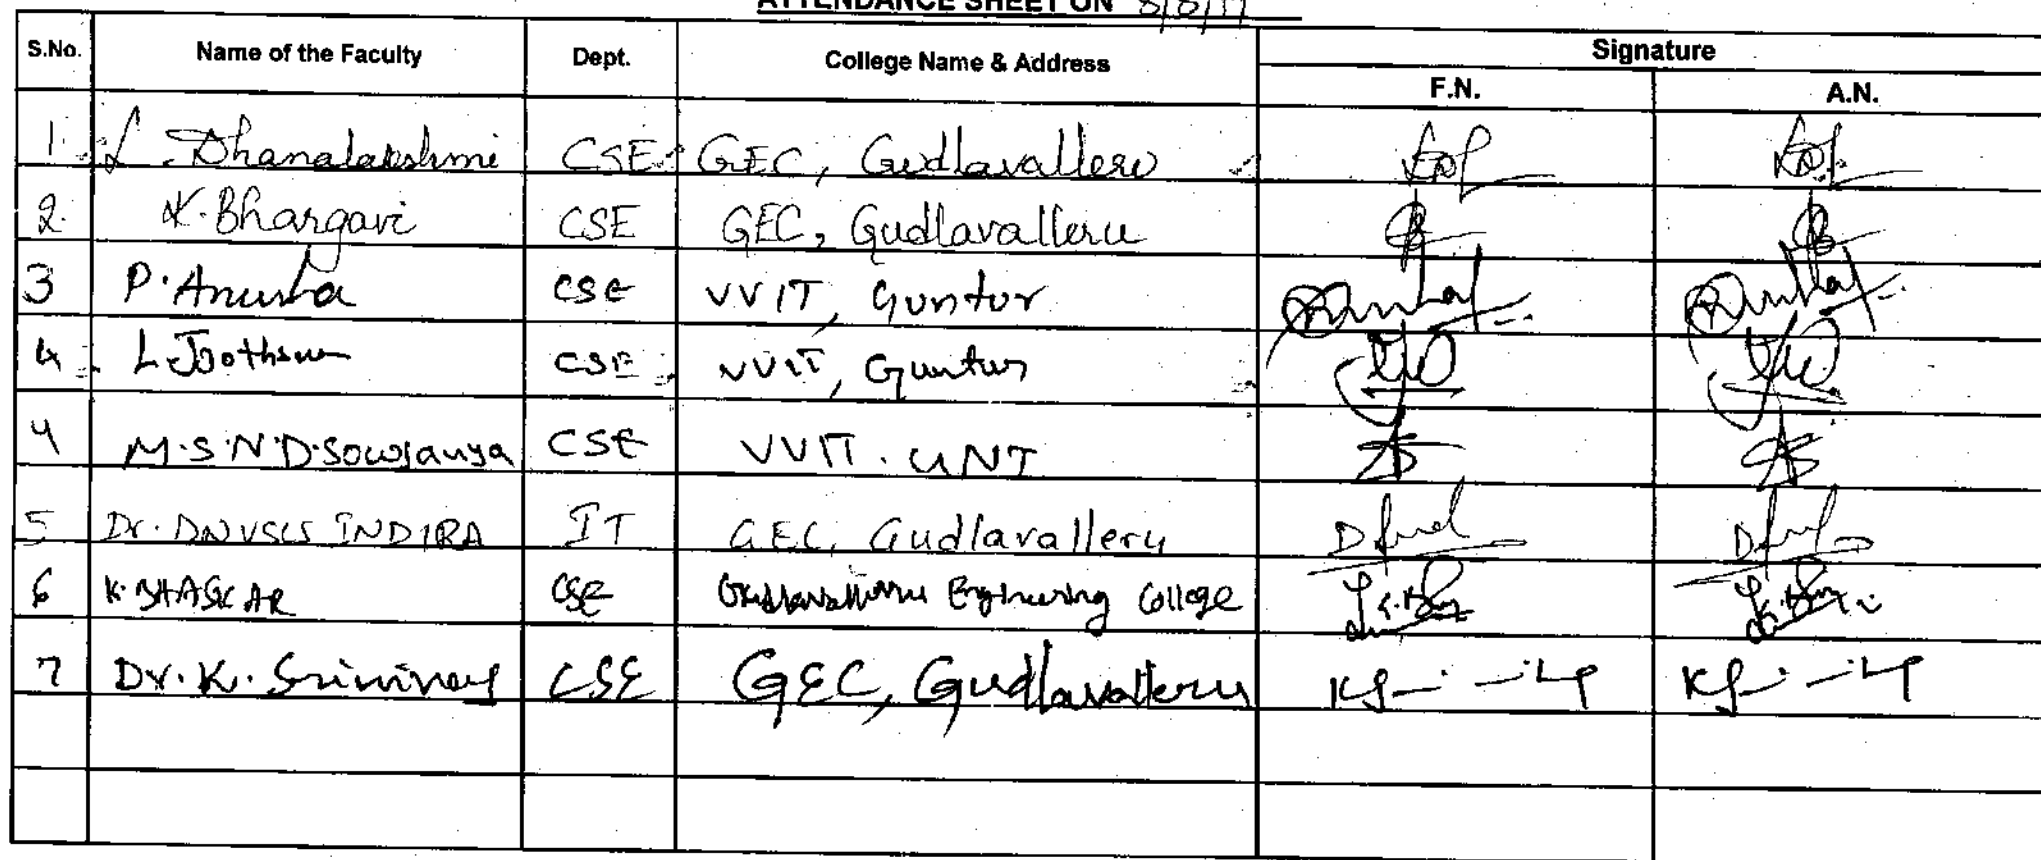 ATTENDANCE SHEET ON 8/8/17
S.No. Name of the Faculty Dept. College Name & Address Signature
F.N. A.N.
1. L. Dhanalakshmi CSE GEC, Gudlavalleru
2. K. Bhargavi CSE GEC, Gudlavalleru
3 P. Anusha CSE VVIT, Guntur
4. L. CSE VVIT, Guntur
4 M.S.N.D.Sowjanya CSE VVIT. GNT
5 Dr. DNVSLS INDIRA IT G.E.C, Gudlavalleru
6 K. BHASKAR CSE Gudlavalleru Engineering College
7 Dr. K. Srinivas CSE GEC, Gudlavalleru